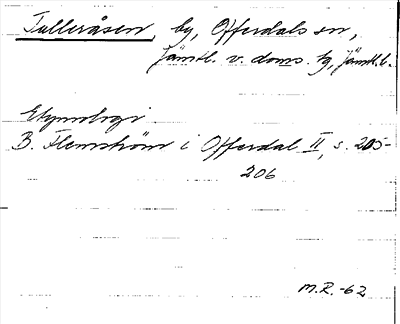 Tulleråsen, by, Offerdals sn,
Jämtl. v. doms. tg, Jämtl. l.
Etymologi
B. Flemström i Offerdal II, s. 205-
206
M.R.-62